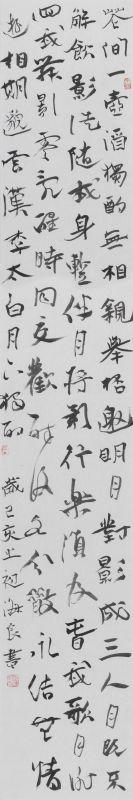 花間一壺酒獨酌無相親舉杯邀明月對影成三人月既不
解飲影徒隨我身暫伴月將影行樂須及春我歌月徘
徊我舞影零亂醒時同交歡醉後各分散永結無情
遊相期邈雲漢李太白月下獨酌
歲己亥之初海良書